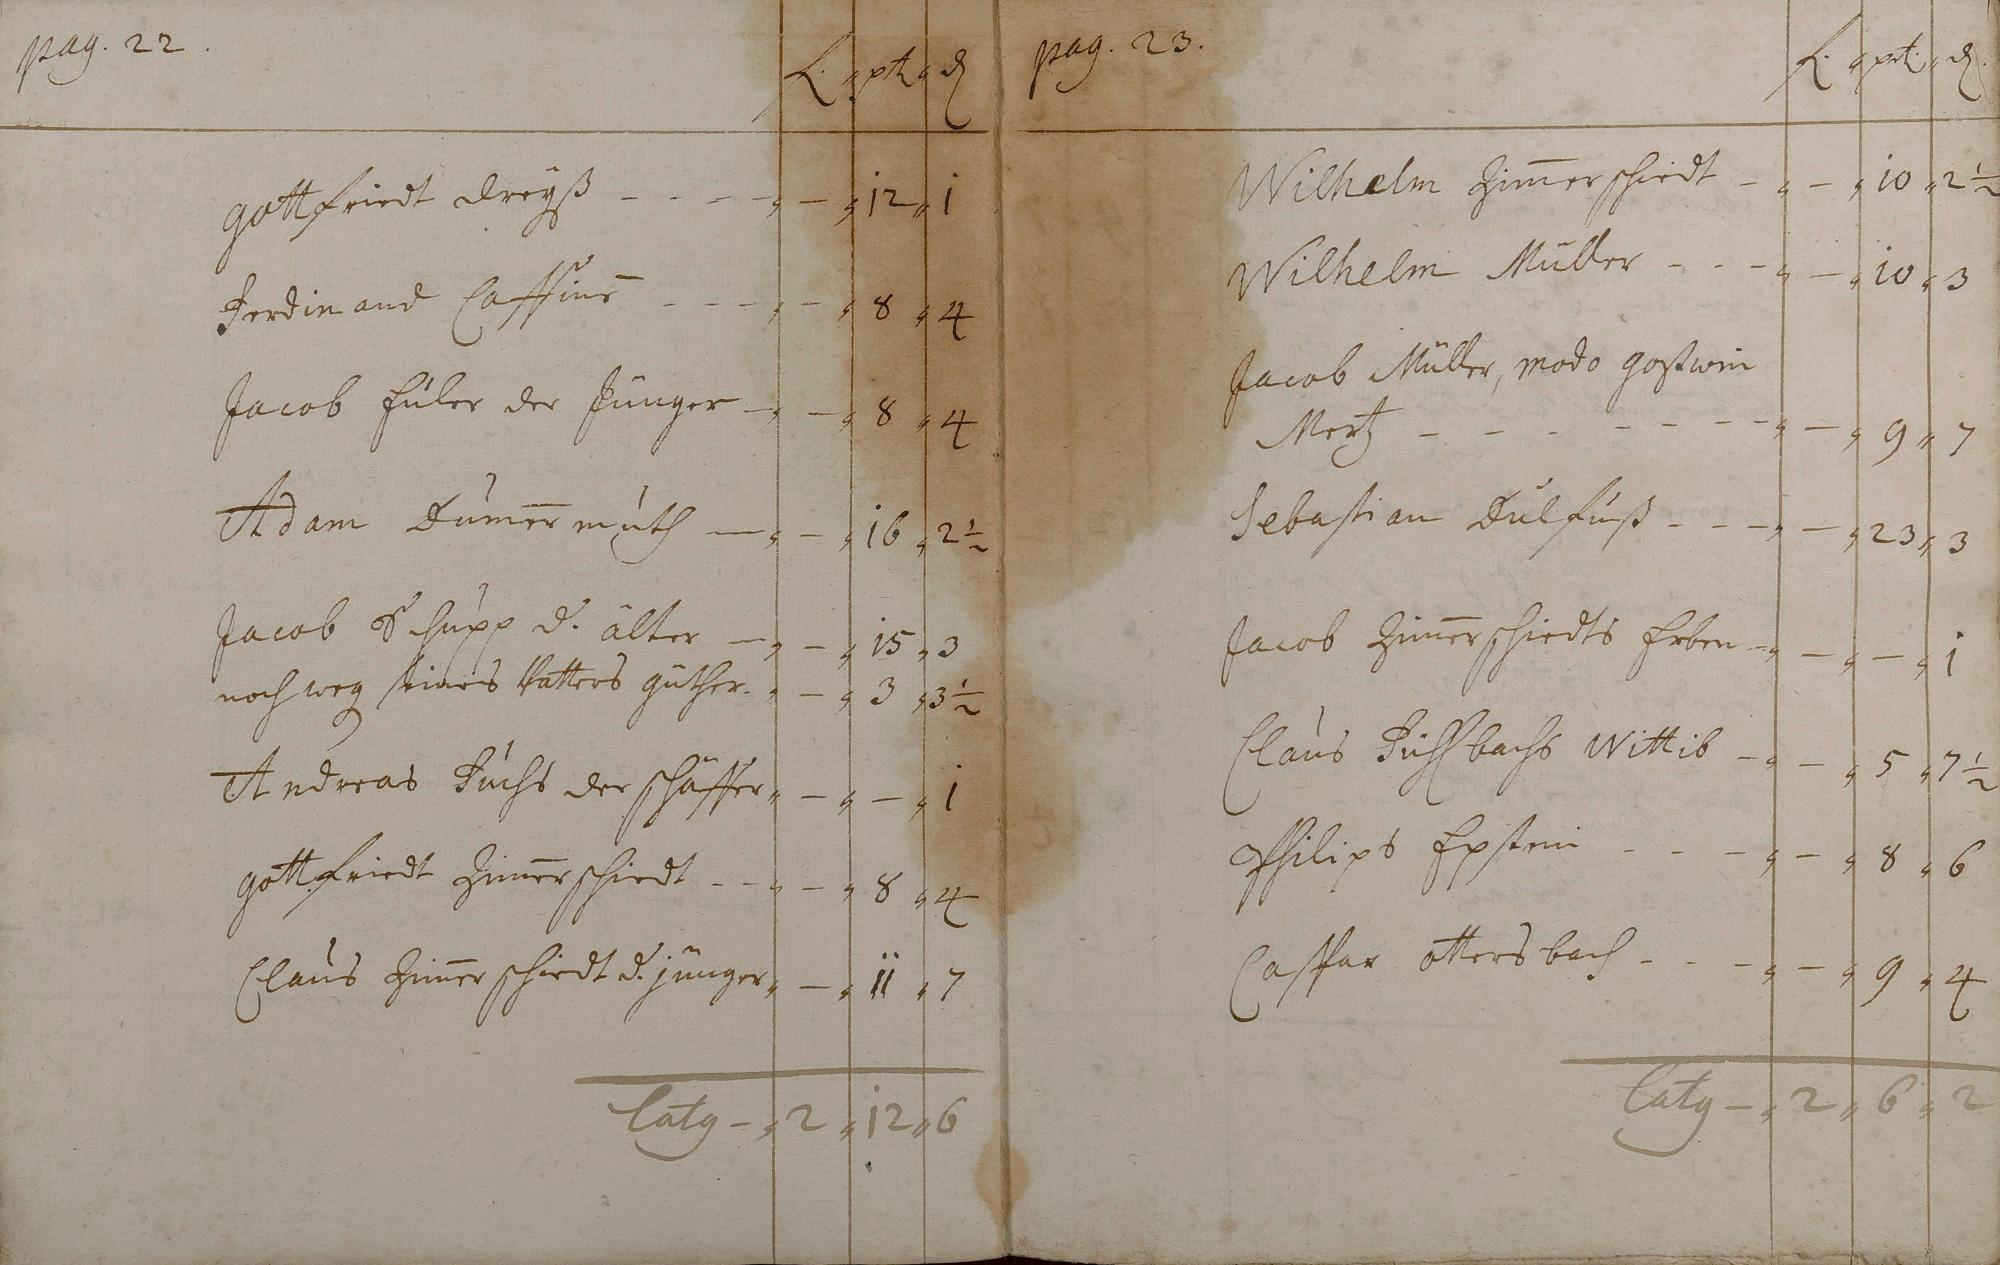 pag. 22.
f. " ptz " ₰
gottfriedt dreyß - - - - " — " 12 " 1
Ferdinand Cassius - - - - " — " 8 " 4
Jacob füler der Jünger — " — " 8 " 4
Adam Dum̄ermuth — " — " 16 " 2 1/2
Jacob Schupp d. älter — " — " 15 " 3
noch weg seines Vatters güther. " — " 3 " 3 1/2
Andreas Fuchs der schäffer " — " — " 1
gottfriedt Zim̄erschiedt - - " — " 8 " 4
Claus Zim̄erschiedt d. jünger " — " 11 " 7
Latg — " 2 " 12 " 6
pag. 23.
f. " ptz " ₰.
Wilhelm Zim̄erschiedt - " — " 10 " 2 1/2
Wilhelm Müller - - - " — " 10 " 3
Jacob Müller, modo goßwin
Mertz - - - - - - - - " — " 9 " 7
Sebastian Dulfuß - - - " — " 23 " 3
Jacob Zim̄erschiedts Erben - " — " — " 1
Claus bachs Wittib - " — " 5 " 7 1/2
Philips Epstein - - - " — " 8 " 6
Caspar ottersbach - - - " — " 9 " 4
Latg — " 2 " 6 " 2